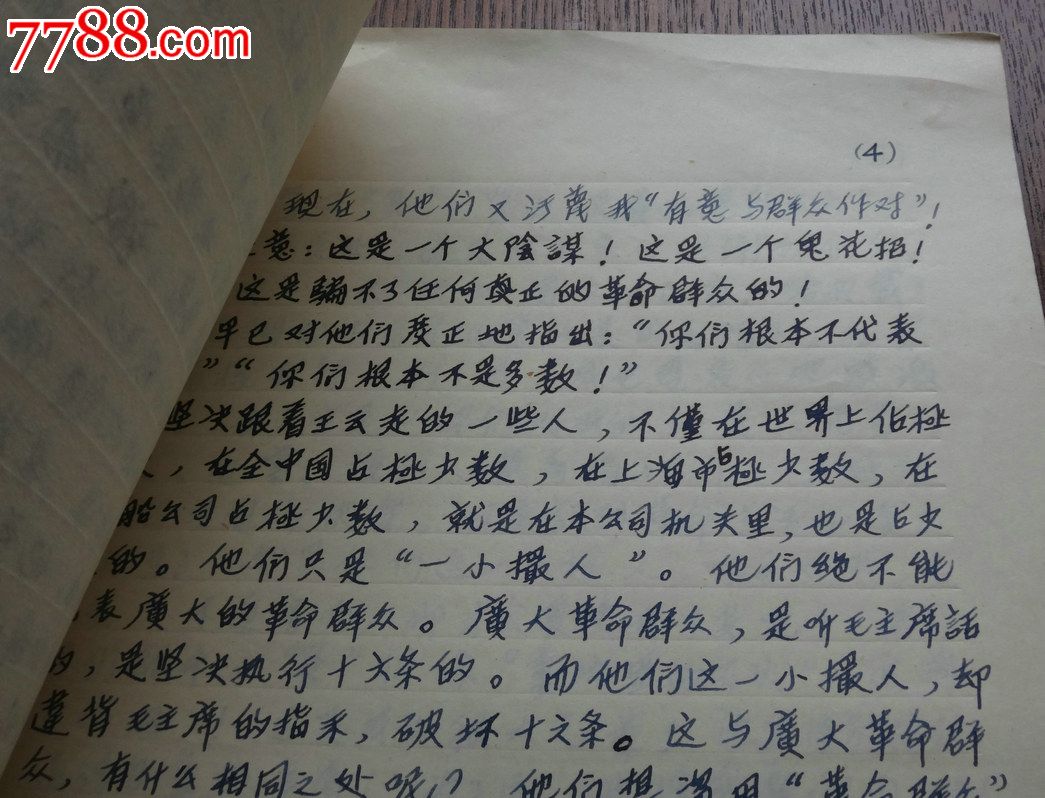 7788.com
(4)
现在，他们又污蔑我“有意与群众作对”！
意：这是一个大陰謀！这是一个鬼花招！
这是騙不了任何真正的革命群众的！
早已对他们严正地指出：“你们根本不代表
”“你们根本不是多数！”
坚决跟着王云走的一些人，不僅在世界上佔極
，在全中国占極少数，在上海市占極少数，在
船公司占極少数，就是在本公司机关里，也是占少
的。他们只是“一小撮人”。他们绝不能
表廣大的革命群众。廣大革命群众，是听毛主席話
的，是坚决执行十六条的。而他们这一小撮人，却
違背毛主席的指示，破坏十六条。这与廣大革命群
众，有什么相同之处呢？他们想濫用“革命群众”